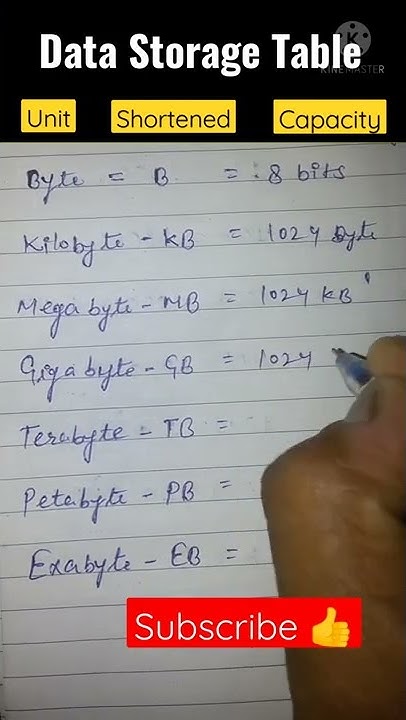 Data Storage Table
KINEMASTER
Unit Shortened Capacity
Byte = B = 8 bits
Kilobyte - KB = 1024 Byte
Megabyte - MB = 1024 KB
Gigabyte - GB = 1024
Terabyte - TB =
Petabyte - PB =
Exabyte - EB =
Subscribe 👍